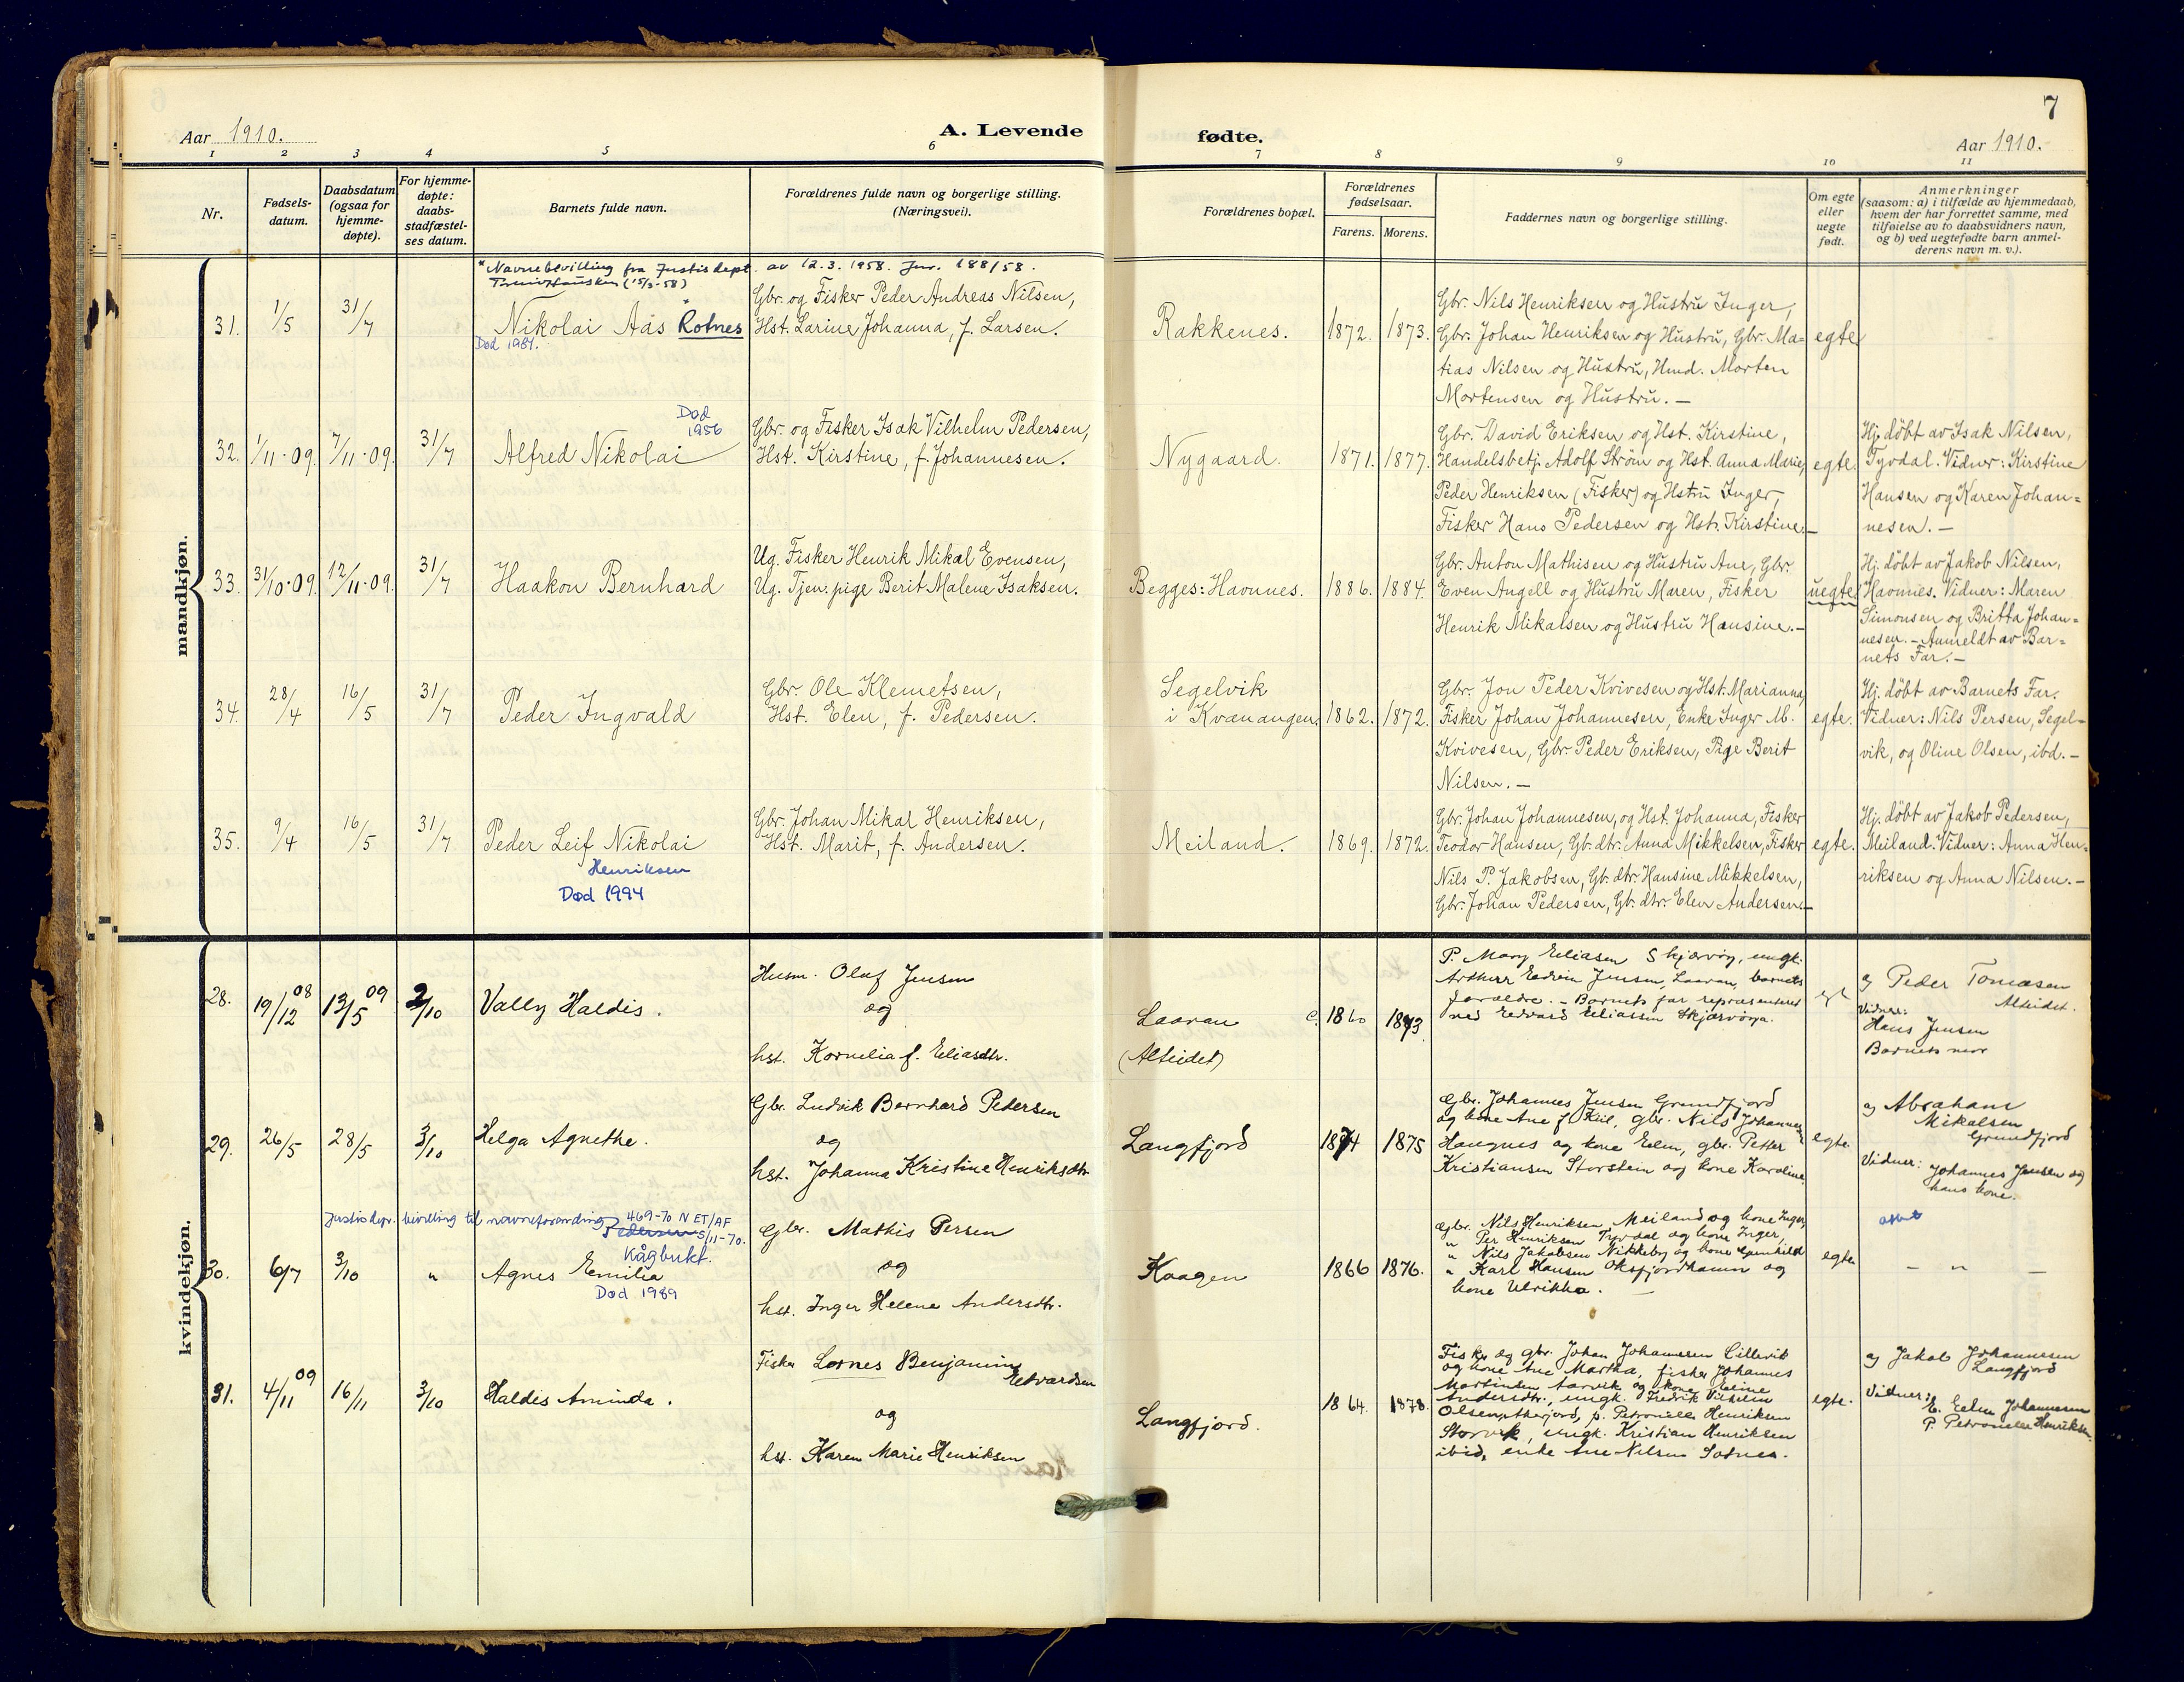 Aar 1910.
A. Levende
fødte.
7
Aar 1910.
1 2 3 4 5 6 7 8 9 10 11
Nr.
Fødsels-
datum.
Daabsdatum
(ogsaa for
hjemme-
døpte).
For hjemme-
døpte:
daabs-
stadfæstel-
ses datum.
Barnets fulde navn.
Forældrenes fulde navn og borgerlige stilling.
(Næringsvei).
Forældrenes bopæl.
Forældrenes
fødselsaar.
Farens. Morens.
Faddernes navn og borgerlige stilling.
Om egte
eller
uegte
født.
Anmerkninger
(saasom: a) i tilfælde av hjemmedaab,
hvem der har forrettet samme, med
tilføielse av to daabsvidners navn,
og b) ved uegtefødte barn anmel-
derens navn m. v.).
mandkjøn.
* Navnebevilling fra Justisdept. av 12.3.1958. Jnr. 188/58.
(15/3-58)
31.
1/5
31/7
Nikolai Aas * Rotnes
Død 1984.
Gbr. og Fisker Peder Andreas Nilsen,
Hst. Larine Johanna, f. Larsen.
Rakkenes.
1872. 1873.
Gbr. Nils Henriksen og Hustru Inger,
Gbr. Johan Henriksen og Hustru, Gbr. Ma=
tias Nilsen og Hustru, Hmd. Morten
Mortensen og Hustru. —
egte
32.
1/11-09.
7/11-09.
31/7
Død
1956
Alfred Nikolai
Gbr. og Fisker Isak Vilhelm Pedersen,
Hst. Kirstine, f. Johannesen.
Nygaard.
1871. 1877.
Gbr. David Eriksen og Hst. Kirstine,
Handelsbetj. Adolf Strøm og Hst. Anna Marie,
Peder Henriksen (Fisker) og Hstru Inger,
Fisker Hans Pedersen og Hst. Kirstine. —
egte.
Hj. döbt av Isak Nilsen,
Tyvdal. Vidner: Kirstine
Hansen og Karen Johan=
nesen. —
33.
31/10-09.
12/11-09.
31/7
Haakon Bernhard
Ug. Fisker Henrik Mikal Evensen,
Ug. Tjen. pige Berit Malene Isaksen.
Begges: Havnnes.
1886. 1884.
Gbr. Anton Mathisen og Hustru Ane, Gbr.
Even Angell og Hustru Maren, Fisker
Henrik Mikalsen og Hustru Hansine. —
uegte.
Hj. döbt av Jakob Nilsen,
Havnnes. Vidner: Maren
Simonsen og Britta Johan=
nesen. — Anmeldt av Bar=
nets Far. —
34.
28/4
16/5
31/7
Peder Ingvald
Gbr. Ole Klemetsen,
Hst. Elen, f. Pedersen.
Segelvik
i Kvænangen.
1862. 1872.
Gbr. Jon Peder Kvivesen og Hst. Marianna,
Fisker Johan Johannesen, Enke Inger M.
Kvivesen, Gbr. Peder Eriksen, Pige Berit
Nilsen. —
egte.
Hj. döbt av Barnets Far.
Vidner: Nils Persen, Segel-
vik, og Oline Olsen, ibd. —
35.
9/4
16/5
31/7
Peder Leif Nikolai
Henriksen
Død 1994
Gbr. Johan Mikal Henriksen,
Hst. Marit, f. Andersen.
Meiland.
1869. 1872.
Gbr. Johan Johannesen, og Hst. Johanna, Fisker
Teodor Hansen, Gb. dtr. Anna Mikkelsen, Fisker
Nils P. Jakobsen, Gb. dtr. Hansine Mikkelsen,
Gbr. Johan Pedersen, Gb. dtr. Elen Andersen. —
egte.
Hj. döbt av Jakob Pedersen,
Meiland. Vidner: Anna Hen=
riksen og Anna Nilsen. —
kvindekjøn.
28.
19/12 08
13/5 09
2/10
Vally Haldis.
Husm. Olaf Jensen
og
hst. Kornelia f. Eliasdtr.
Laavan
(Alteidet)
1860 1873.
P. Mary Eliasen Skjærvøy, ungk.
Jensen, Laavan, barnets
forældre. — Barnets far repræsenteret
ved Edvard Eliassen Skjærvøya.
egt
Peder Tomasen
Alteidet.
Vidner:
Hans Jensen
Barnets mor
29.
26/5
28/5
3/10
Helga Agnethe.
Gbr. Ludvik Bernhard Pedersen
og
hst. Johanna Kristine Henriksdtr.
Langfjord
1874 1875
Gbr. Johannes Jensen Grundfjord
og kone Ane f. Kiil, gbr. Nils Johannesen
Haugnes og kone Elen, gbr. Petter
Kristiansen Storstein og kone Karoline.
egte.
Abraham
Mikalsen
Grundfjord
Vidner: Johannes Jensen og
hans kone.
Justisdepr. bevilling til navneforandring 469-70 N ET/AF
Pedersen 5/11-70.
Kågbukt.
30.
6/7
3/10
"
Agnes Emilia
Død 1989
Gbr. Mathis Persen
og
hst. Inger Helene Andersdtr.
Kaagen
1866 1876.
Gbr. Nils Henriksen, Meiland og kone Inger,
" Per Henriksen Tyvdal og kone Inger,
" Nils Jakobsen Nikkeby og kone
" Karl Hansen Oksfjordhamn og
kone Ulrikka. —
egte
— " —
31.
4/11 09
16/11
3/10
Haldis Aminda.
Fisker Lornes Benjamin
Edvardsen
og
hst. Karen Marie Henriksen
Langfjord.
1864. 1878.
Fisker og gbr. Johan Johannesen
og kone Ane Martha, fisker Johannes
Martinsen og kone Eline
Andersdtr., ungk. Fredrik Vilhelm
Olsen, p. Petronelle Henriksen
Storvik, ungk. Kristian Henriksen
ibid, enke Ane Nilsen
egte.
Jakob Johannessen
Langfjord
Vidner:
E. Elen Johannesen
P. Petronelle Henriksen.